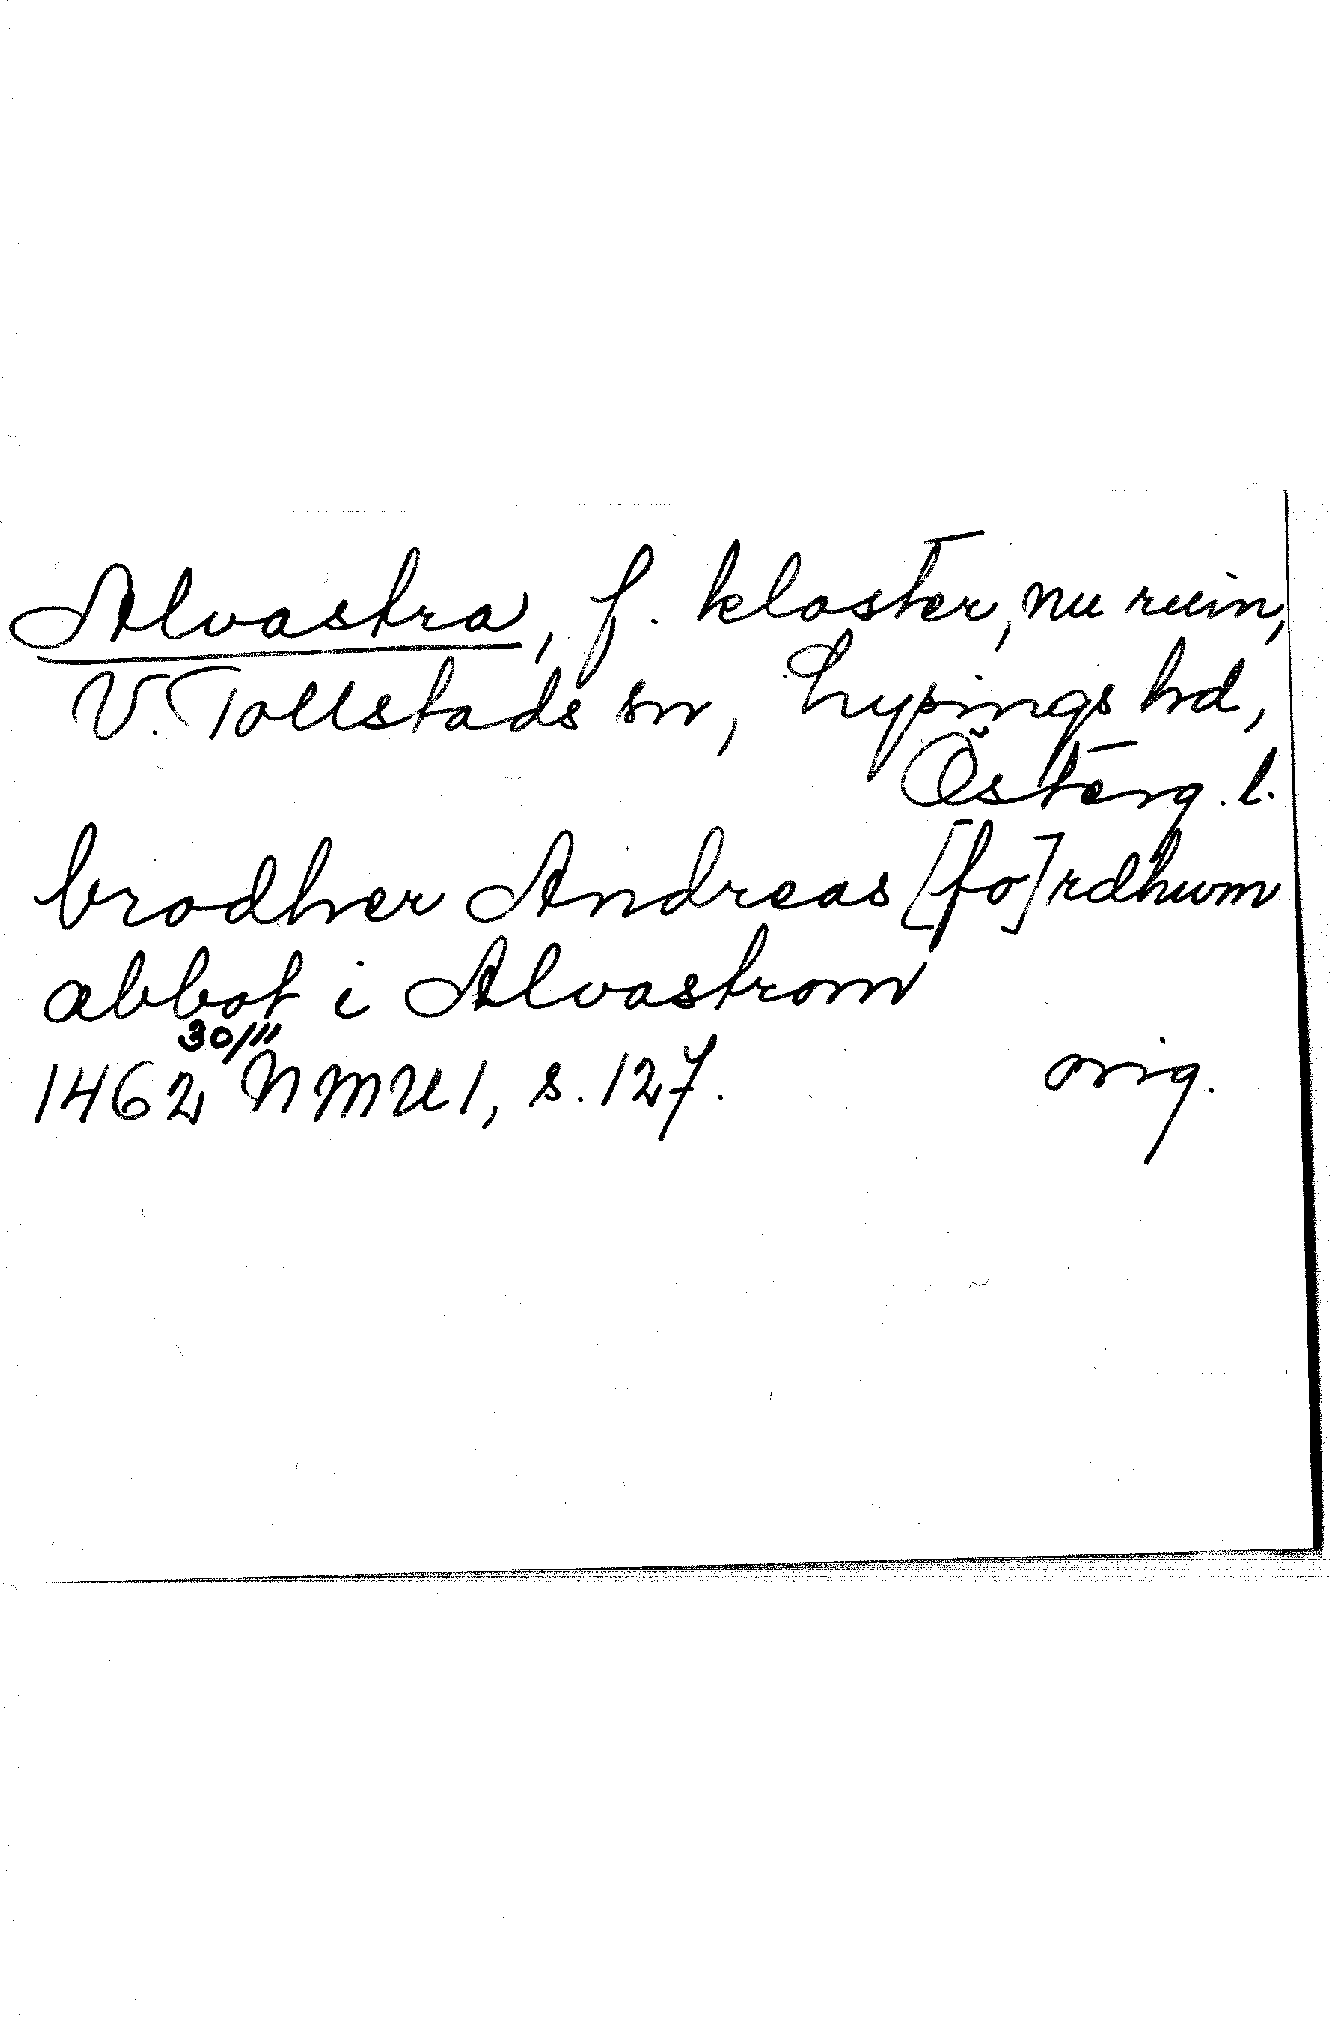 Alvastra, f. kloster, nu ruin,
V. Tollstads sn, Lysings hd,
Österg. l.
brodher Andreas [fo]rdhum
abbot i Alvastrom
30/11
1462 NMU 1, s. 127. orig.